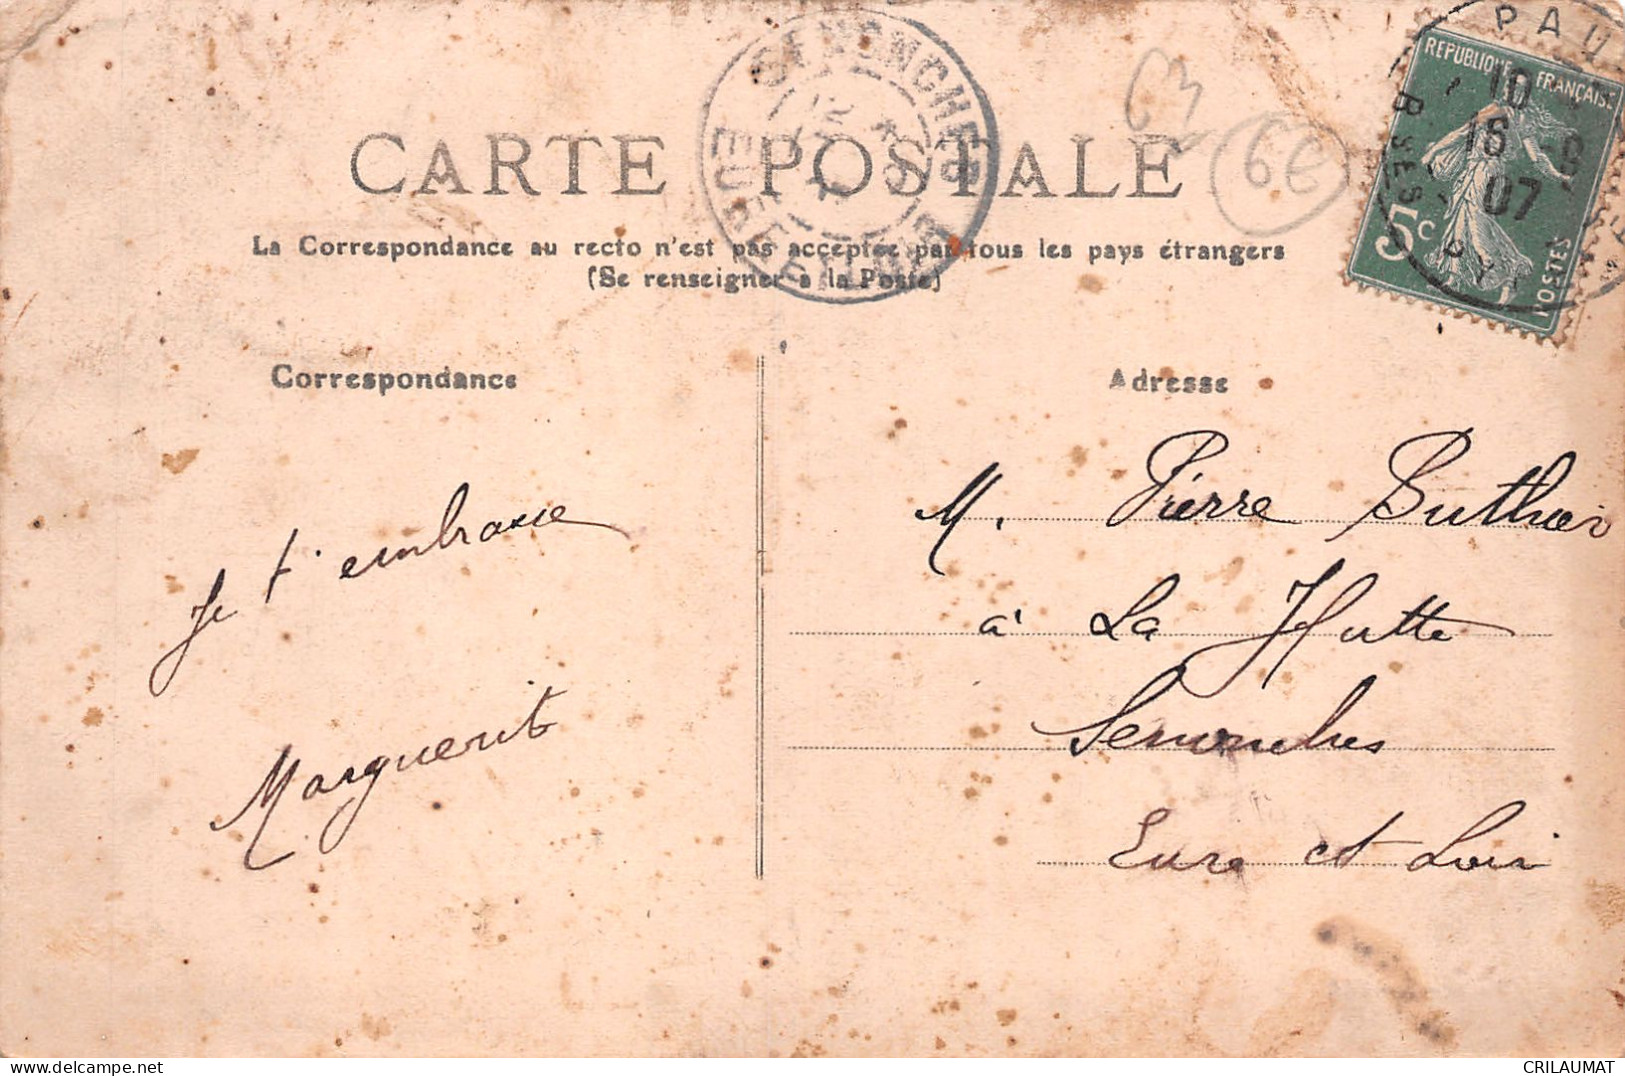 CARTE POSTALE
La Correspondance au recto n'est pas acceptée par tous les pays étrangers
(Se renseigner à la Poste)
SENONCHES
EURE ET LOIR
63
6E
PAU
10
16 -9
07
REPUBLIQUE FRANÇAISE
5c
POSTES
Correspondance
Je t'embrasse
Marguerite
Adresse
M. Pierre Buthier
à La Hutte
Senonches
Eure et Loir
CRILAUMAT